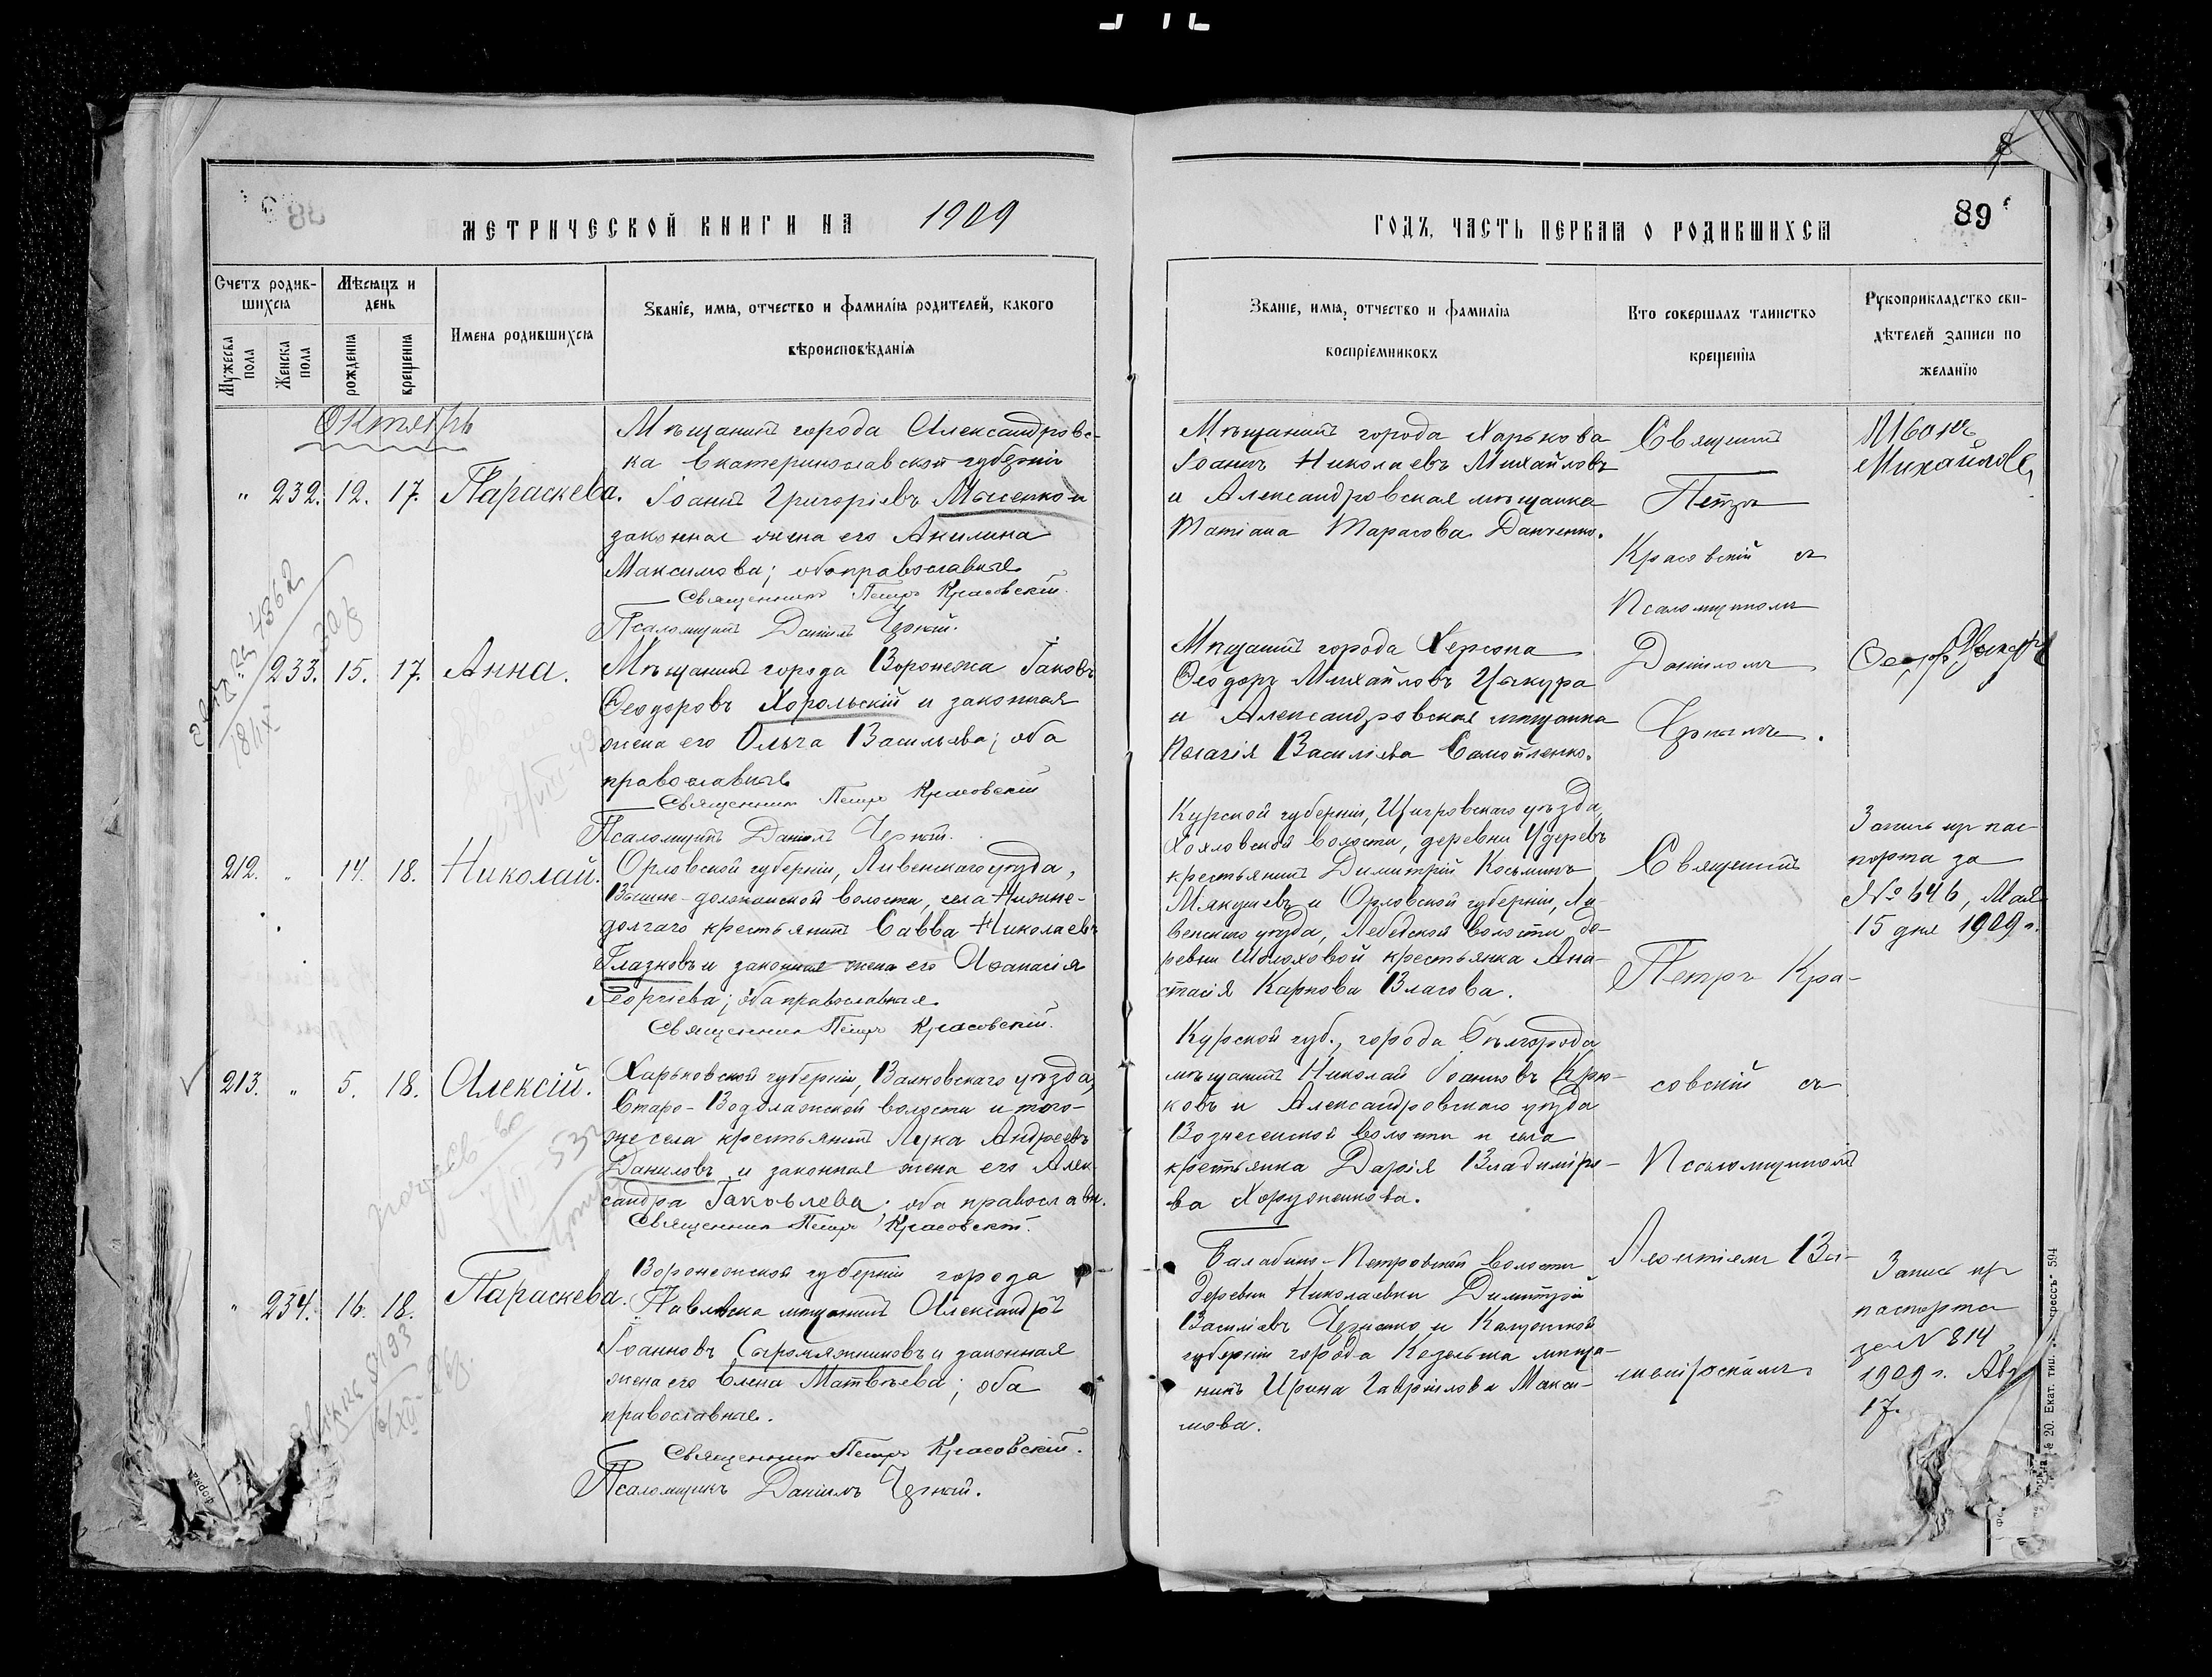 89
МЕТРИЧЕСКОЙ КНИГИ НА 1909
ГОДЪ, ЧАСТЬ ПЕРВАЯ О РОДИВШИХСЯ
Счетъ родив-
шихся
Мужеска
пола
Женска
пола
Мѣсяцъ и
день
рожденія
крещенія
Имена родившихся
Званіе, имя, отчество и фамилія родителей, какого
вѣроисповѣданія
Званіе, имя, отчество и фамилія
воспріемниковъ
Кто совершалъ таинство
крещенія
Рукоприкладство сви-
дѣтелей записи по
желанію
Октябрь
" 232. 12. 17. Параскева.
Мѣщанинъ города Александровс-
ка Екатеринославской губерніи
Іоаннъ Григоріевъ Мысенко и
законная жена его Акилина
Максимова; оба православные
Священникъ Петръ Красовскій.
Псаломщикъ Даніилъ Черный.
Мѣщанинъ города Харькова
Іоаннъ Николаевъ Михайловъ
и Александровская мѣщанка
Татіана Тарасова Данченко.
Священникъ
Петръ
Красовскій съ
Псаломщикомъ
Даніиломъ
Чернымъ.
Иванъ
Михайловъ
233. 15. 17. Анна.
Мѣщанинъ города Воронежа Іаковъ
Ѳеодоровъ Хорольскій и законная
жена его Ольга Васильева; оба
православные
Священникъ Петръ Красовскій
Псаломщикъ Даніилъ Черный.
Мѣщанинъ города Херсона
Ѳеодоръ Михайловъ Цыкура
и Александровская мѣщанка
Пелагія Василіева Самойленко.
212. " 14. 18. Николай.
Орловской губерніи, Ливенскаго уѣзда,
Вышне-должанской волости, села Нижне-
долгаго крестьянинъ Савва Николаевъ
Глазковъ и законная жена его Аѳанасія
Георгіева; оба православные.
Священникъ Петръ Красовскій.
Курской губерніи, Щигровскаго уѣзда,
Хохловской волости, деревни Удеревъ
крестьянинъ Димитрій Косьминъ
Мякушевъ и Орловской губерніи, Ли-
венскаго уѣзда, Лебедской волости, де-
ревни Шолоховой крестьянка Ана-
стасія Карпова Власова.
Священникъ
Петръ Кра-
совскій съ
Псаломщикомъ
Леонтіемъ Вла-
Запись изъ пас-
порта за
№ 646, Мая
15 дня 1909 г.
213. " 5. 18. Алексій.
Харьковской губерніи, Валковскаго уѣзда,
Старо-Водолажской волости и того-
же села крестьянинъ Лука Андреевъ
Даниловъ и законная жена его Алек-
сандра Іаковлева; оба православн.
Священникъ Петръ Красовскій.
Курской губ., города Бѣлгорода
мѣщанинъ Николай Іоанновъ Крю-
ковъ и Александровскаго уѣзда
Вознесенской волости и села
крестьянка Дарія Владиміро-
ва Хоруженкова.
" 234. 16. 18. Параскева.
Воронежской губерніи города
Павловска мѣщанинъ Александръ
Іоанновъ Сыромяжниковъ и законная
жена его Елена Матвѣева; оба
православные.
Священникъ Петръ Красовскій.
Псаломщикъ Даніилъ Черный.
Балабино-Петровской волости
деревни Николаевки Димитрій
Василіевъ Черненко и Калужской
губерніи города Козельска мѣща-
нинъ Ирина Гавріилова Макси-
мова.
Запись изъ
паспорта
за № 814
1909 г. Авг
17.